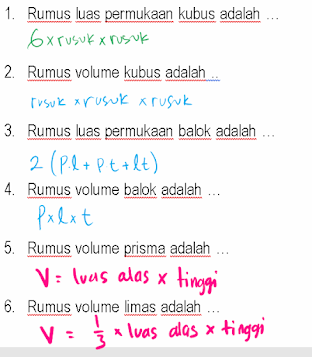 1. Rumus luas permukaan kubus adalah ...
6 x rusuk x rusuk
2. Rumus volume kubus adalah ..
rusuk x rusuk x rusuk
3. Rumus luas permukaan balok adalah ...
2 (p.l + p t + l t)
4. Rumus volume balok adalah ...
p x l x t
5. Rumus volume prisma adalah ...
V = luas alas x tinggi
6. Rumus volume limas adalah ...
V = 1/3 x luas alas x tinggi